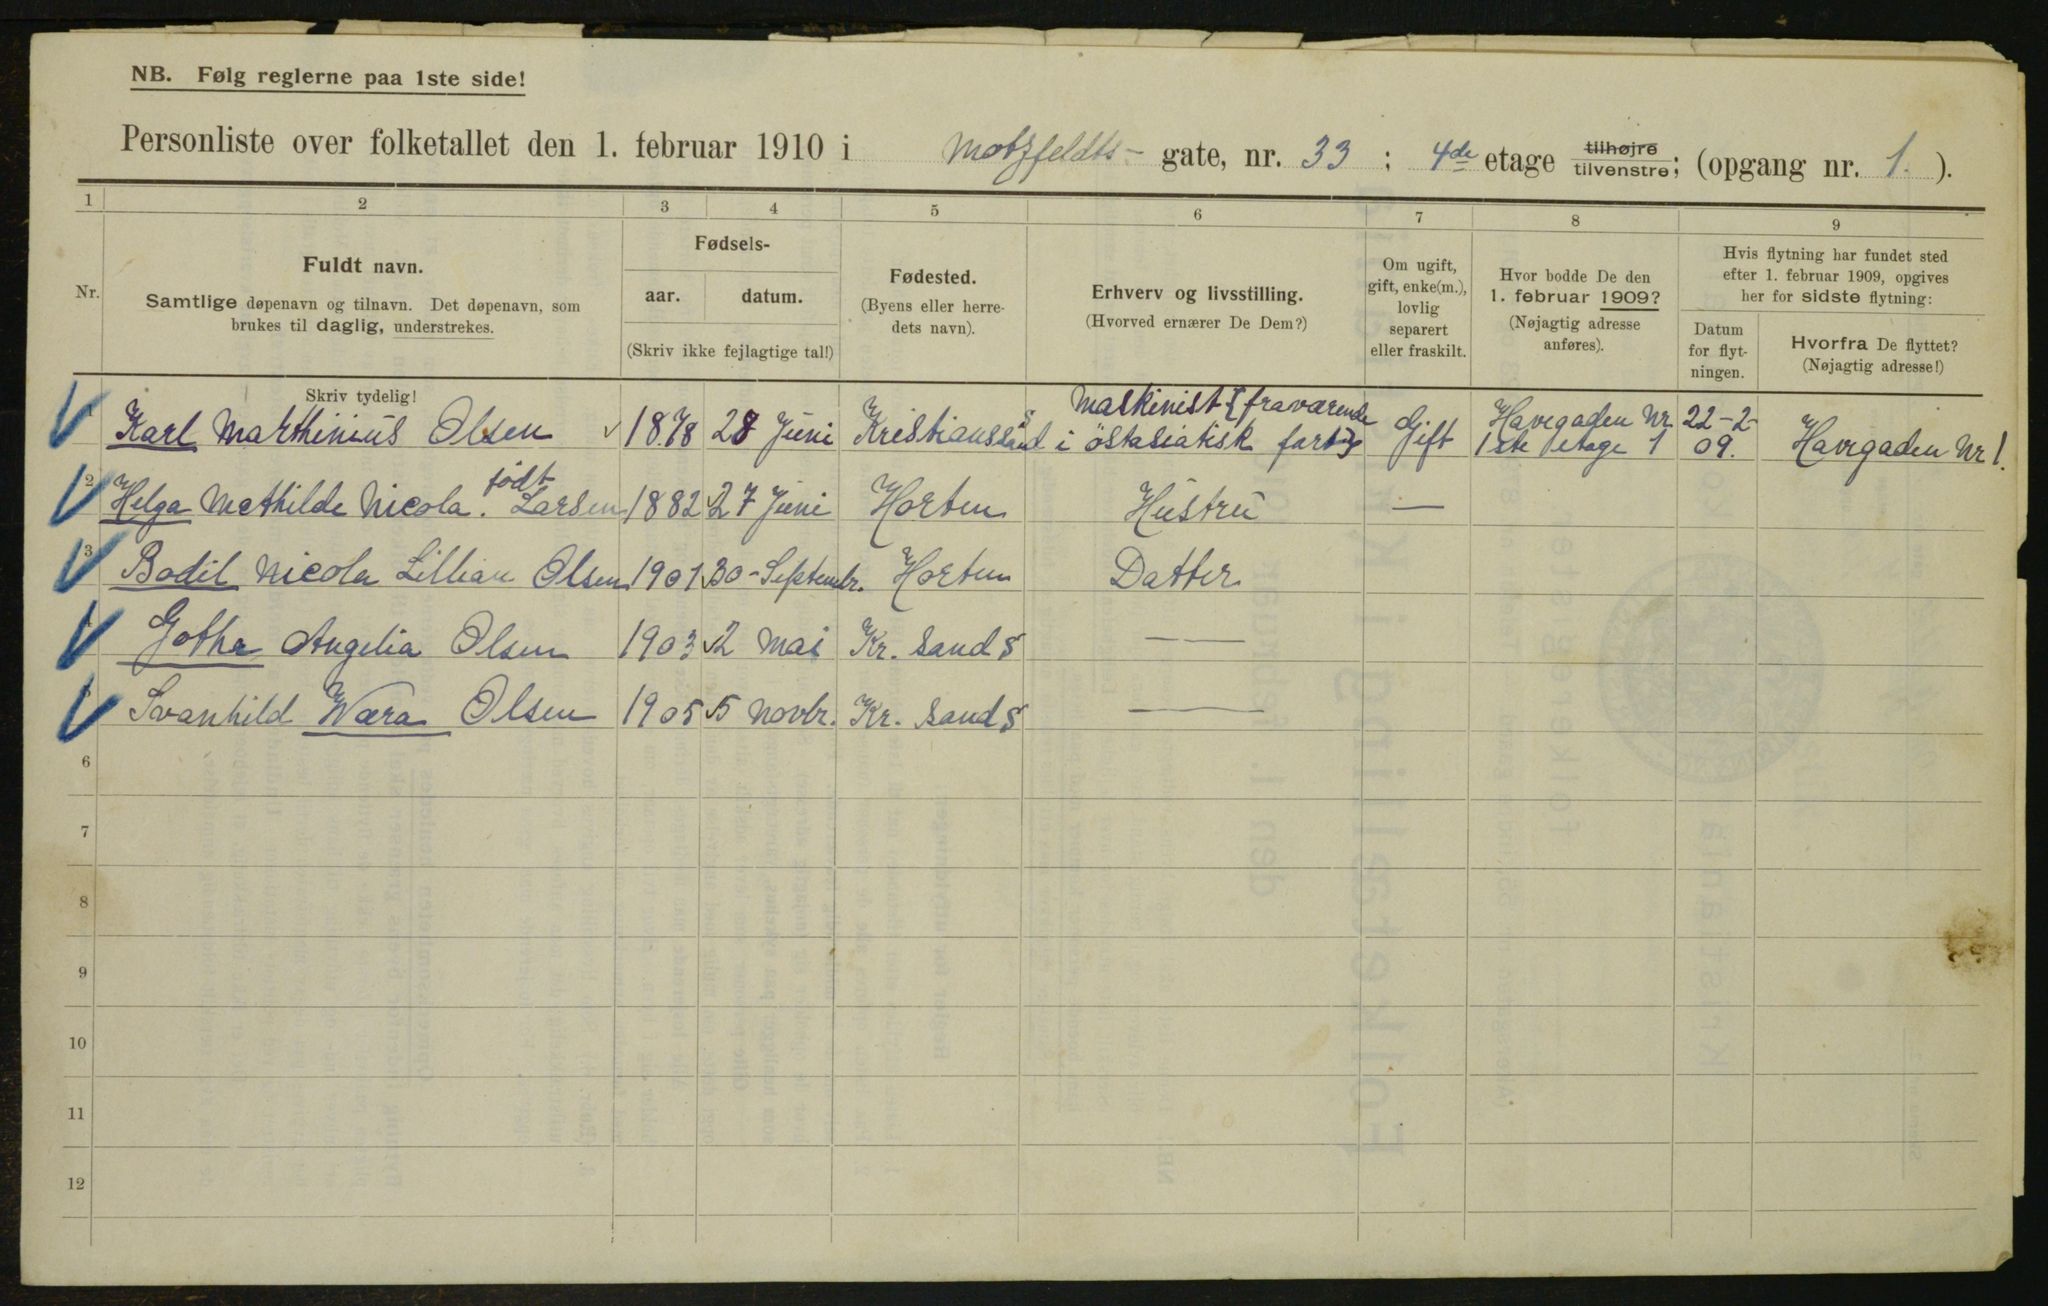 NB. Følg reglerne paa 1ste side!
Personliste over folketallet den 1. februar 1910 i Motzfeldts- gate, nr. 33 ; 4de etage tilhøjre tilvenstre; (opgang nr. 1. ).
1 2 3 4 5 6 7 8 9
Nr.
Fuldt navn.
Samtlige døpenavn og tilnavn. Det døpenavn, som
brukes til daglig, understrekes.
Skriv tydelig!
Fødsels-
aar. datum.
(Skriv ikke fejlagtige tal!)
Fødested.
(Byens eller herre-
dets navn).
Erhverv og livsstilling.
(Hvorved ernærer De Dem?)
Om ugift,
gift, enke(m.),
lovlig
separert
eller fraskilt.
Hvor bodde De den
1. februar 1909?
(Nøjagtig adresse
anføres).
Hvis flytning har fundet sted
efter 1. februar 1909, opgives
her for sidste flytning:
Datum
for flyt-
ningen.
Hvorfra De flyttet?
(Nøjagtig adresse!)
1 Karl Marthinius Olsen 1878 28 Juni Kristianssand S Maskinist (fraværende i östasiatisk fart) Gift Havegaden Nr 1 1ste etage 22-2-09. Havegaden Nr 1.
2 Helga Mathilde Nicola. født Larsen 1882 27 Juni Horten Hüstru —
3 Bodil Nicola Lillian Olsen 1901 30-Septembr. Horten Datter
4 Gotha Angelia Olsen 1903 2 Mai Kr. Sand S — —
5 Svanhild Wæra Olsen 1905 5 Novbr. Kr. Sand S ——
6
7
8
9
10
11
12